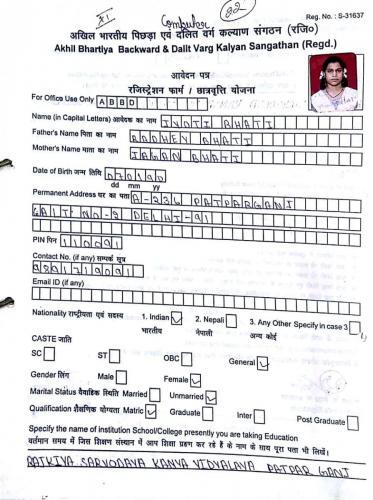 XI Computer 22
Reg. No. : S-31637
अखिल भारतीय पिछड़ा एवं दलित वर्ग कल्याण संगठन (रजि०)
Akhil Bhartiya Backward & Dalit Varg Kalyan Sangathan (Regd.)
आवेदन पत्र
रजिस्ट्रेशन फार्म / छात्रवृत्ति योजना
For Office Use Only ABBD
Name (in Capital Letters) आवेदक का नाम JYOTI BHATI
Father's Name पिता का नाम RADHEY BHATI
Mother's Name माता का नाम JAGAN BHATI
Date of Birth जन्म तिथि 070190
dd mm yy
Permanent Address घर का पता A-236 PATPARGANJ
GALI NO-2 DELHI-91
PIN पिन 110091
Contact No. (if any) सम्पर्क सूत्र
Email ID (if any)
Nationality राष्ट्रीयता एवं सदस्य 1. Indian 2. Nepali 3. Any Other Specify in case 3
भारतीय नेपाली अन्य कोई
CASTE जाति
SC ST OBC General
Gender लिंग Male Female
Marital Status वैवाहिक स्थिति Married Unmarried
Qualification शैक्षणिक योग्यता Matric Graduate Inter Post Graduate
Specify the name of institution School/College presently you are taking Education
वर्तमान समय में जिस शिक्षण संस्थान में आप शिक्षा ग्रहण कर रहे हैं के नाम के साथ पूरा पता भी लिखें।
RAJKIYA SARVODAYA KANYA VIDYALAYA PATPAR GANJ